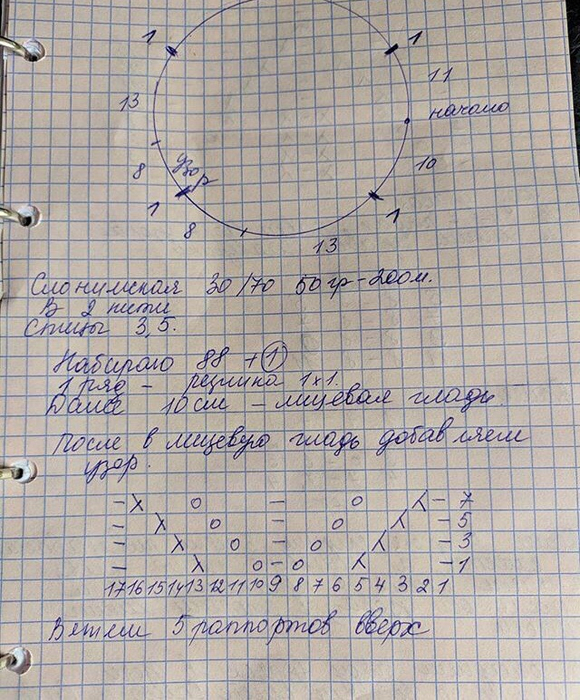 1 1
13 11
начало
8 узор 10
1 1
8 13
Слонимская 30/70 50гр-200м.
В 2 нити
Спицы 3,5.
Набираю 88 + 1
1 ряд - резинка 1х1.
Далее 10 см - лицевая гладь
После в лицевую гладь добавляем
узор.
- X O - O λ - 7
- X O - O λ - 5
- X O - O λ - 3
- X O - O λ - 1
17 16 15 14 13 12 11 10 9 8 7 6 5 4 3 2 1
Вяжем 5 раппортов вверх